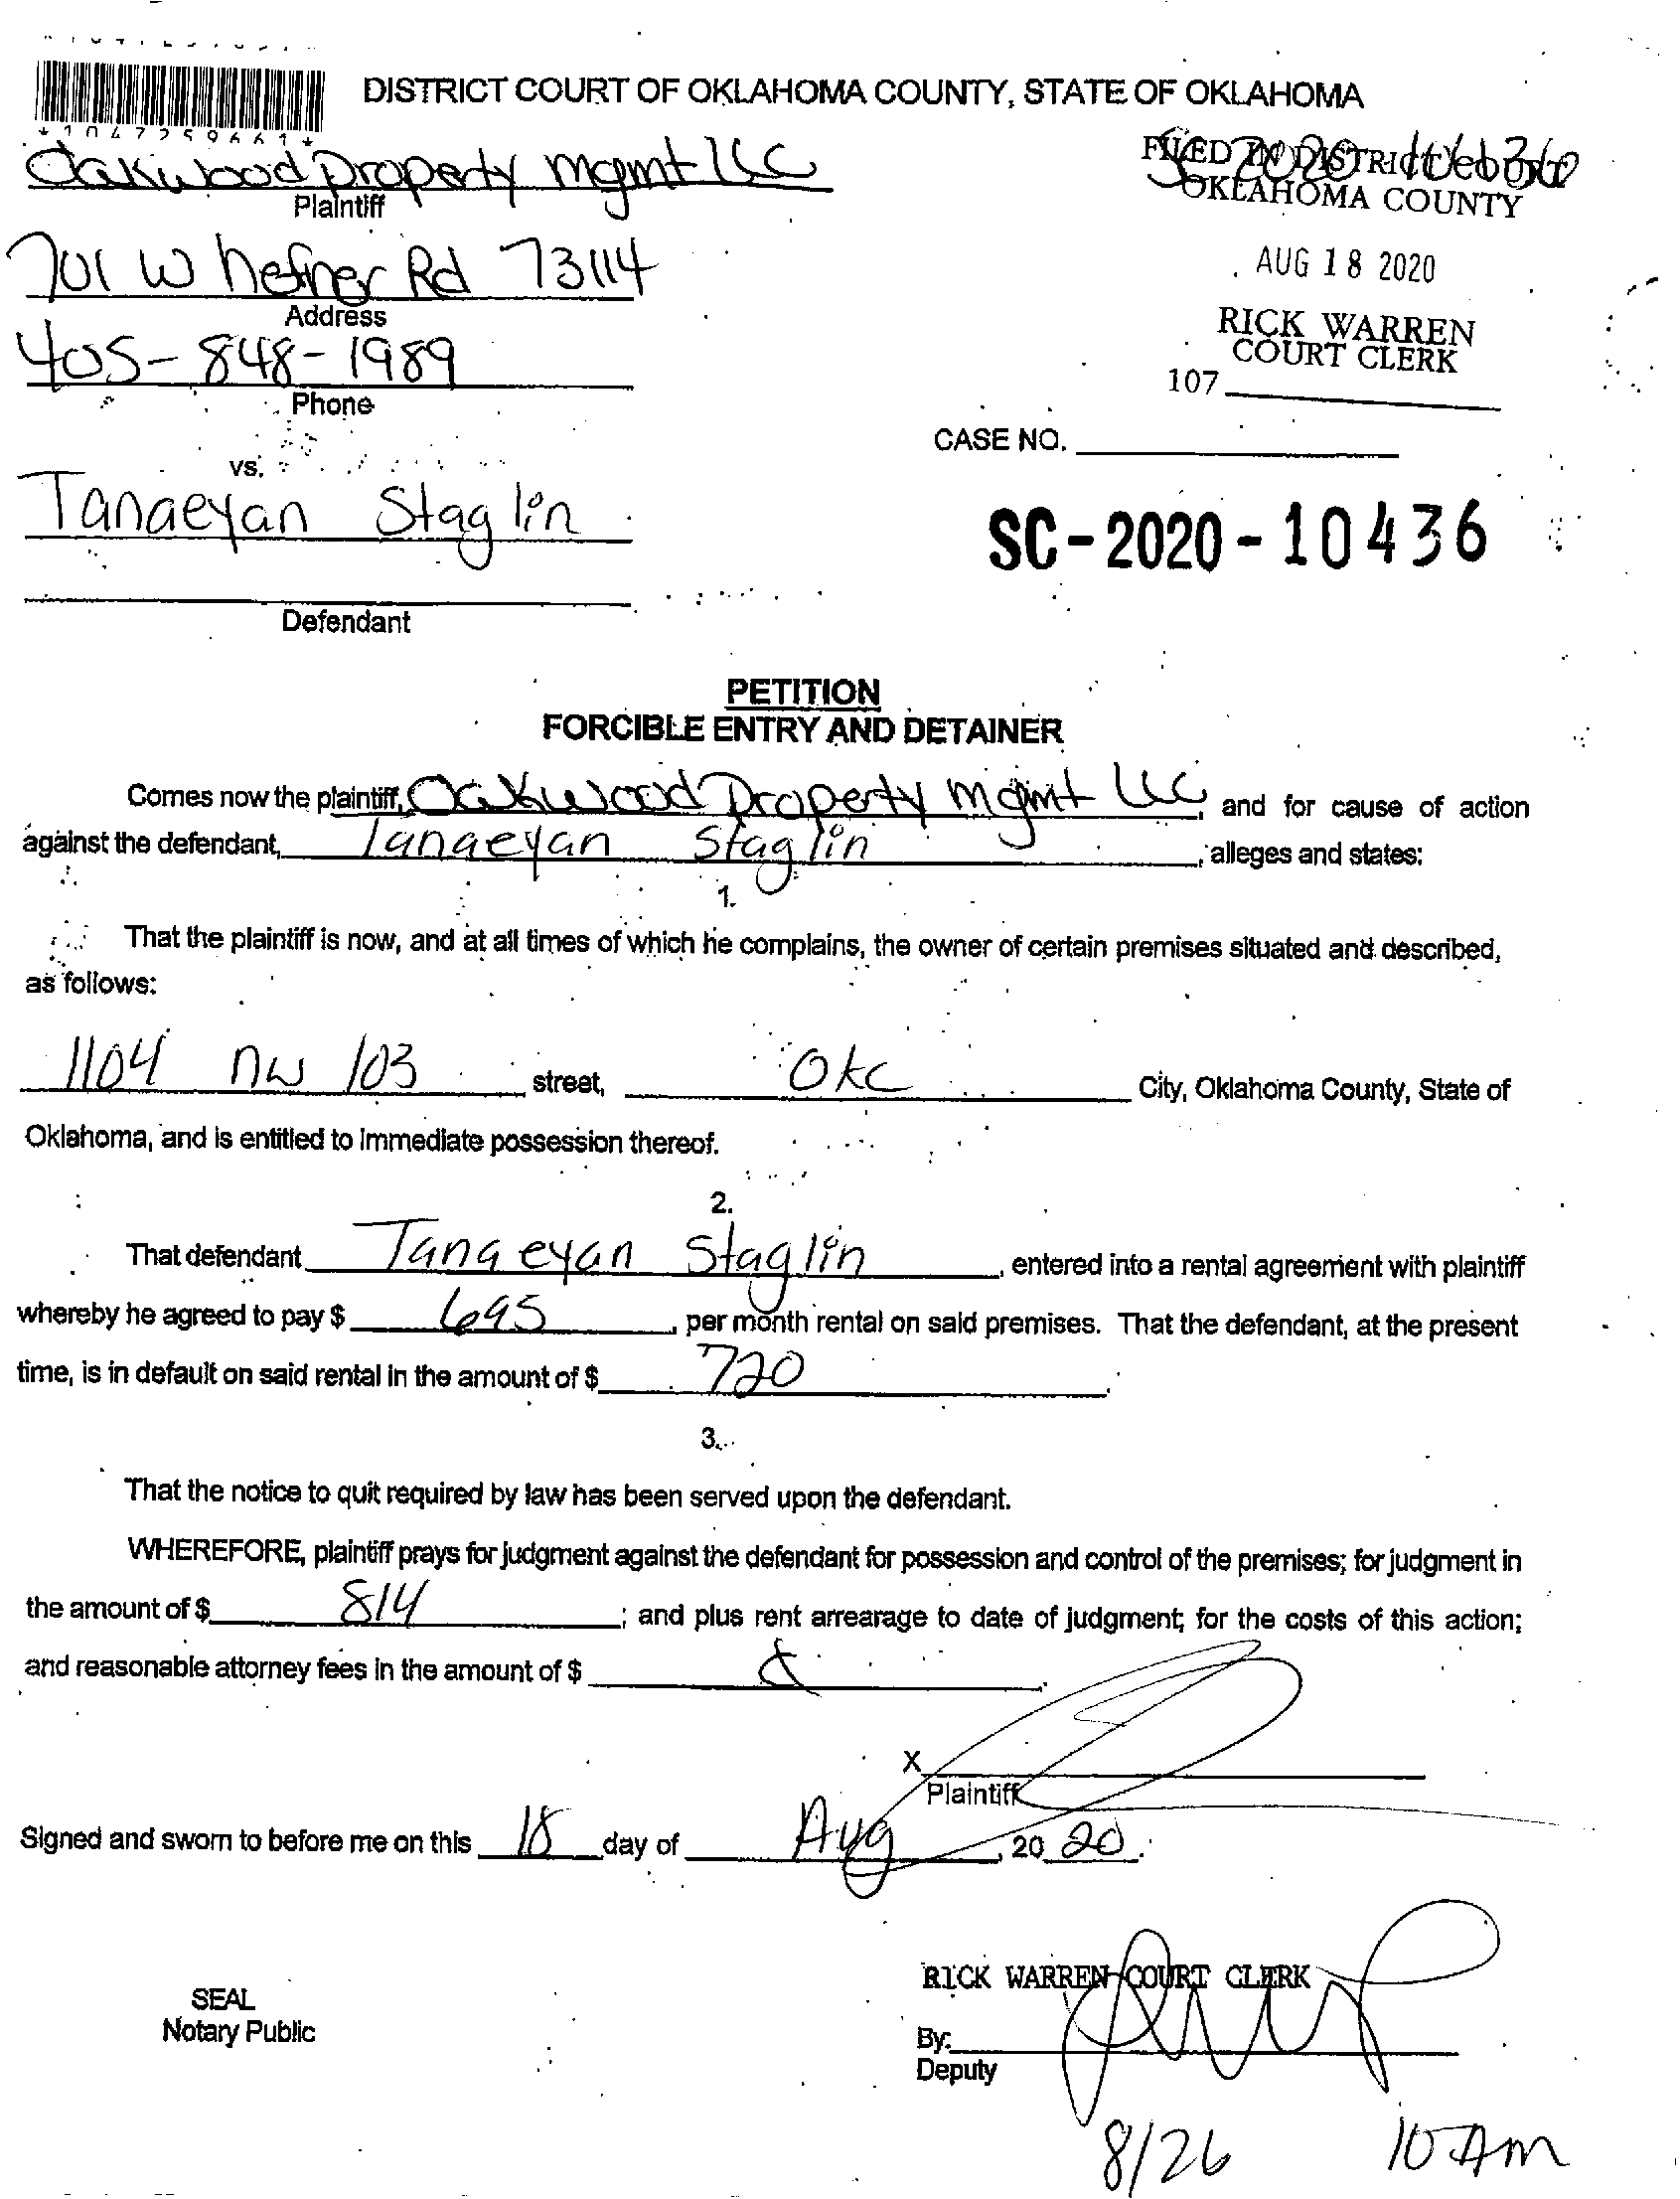 *1047259661*
DISTRICT COURT OF OKLAHOMA COUNTY, STATE OF OKLAHOMA
Oakwood Property Mgmt LLC
Plaintiff
FILED IN DISTRICT COURT
OKLAHOMA COUNTY
701 W hefner Rd 73114
Address
AUG 18 2020
405-848-1989
Phone
RICK WARREN
COURT CLERK
107
CASE NO.
vs.
Tanaeyan Staglin
SC-2020-10436
Defendant
PETITION
FORCIBLE ENTRY AND DETAINER
Comes now the plaintiff, Oakwood Property Mgmt LLC, and for cause of action
against the defendant, Tanaeyan Staglin, alleges and states:
1.
That the plaintiff is now, and at all times of which he complains, the owner of certain premises situated and described,
as follows:
1104 nw 103 street, Okc City, Oklahoma County, State of
Oklahoma, and is entitled to immediate possession thereof.
2.
That defendant Tanaeyan Staglin, entered into a rental agreement with plaintiff
whereby he agreed to pay $ 695, per month rental on said premises. That the defendant, at the present
time, is in default on said rental in the amount of $ 720.
3.
That the notice to quit required by law has been served upon the defendant.
WHEREFORE, plaintiff prays for judgment against the defendant for possession and control of the premises; for judgment in
the amount of $ 814; and plus rent arrearage to date of judgment; for the costs of this action;
and reasonable attorney fees in the amount of $.
X
Plaintiff
Signed and sworn to before me on this 18 day of Aug, 20 20.
RICK WARREN COURT CLERK
SEAL
Notary Public
By:
Deputy
8/26 10 Am